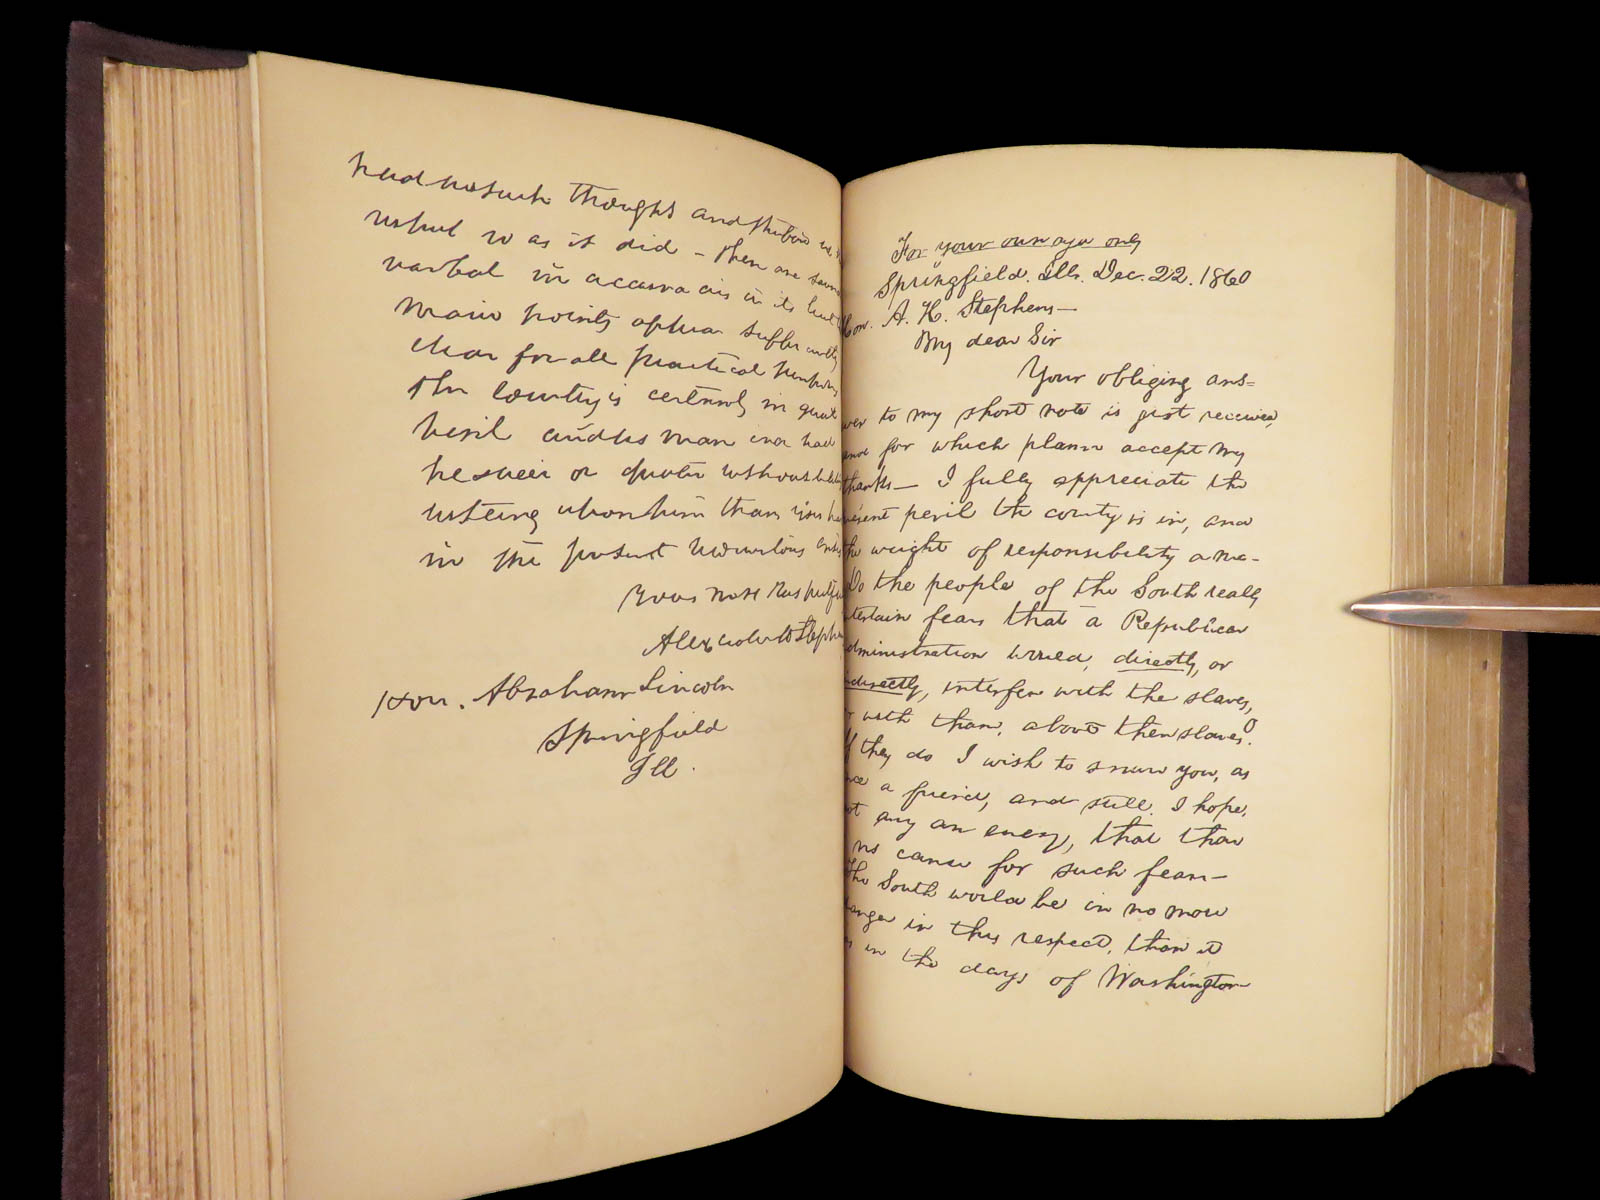 had no such thoughts and
useful to as it did – There are some
verbal in accuracies in its
main points
clear for all practical purposes
The Country is certainly in great
peril and no man ever had
heavier or greater
resting upon him than you
in the present momentous
Yours most
Alexander H Steph
Hon. Abraham Lincoln
Springfield
Ill.
For your own eye only
Springfield. Ills. Dec. 22. 1860
Hon. A. H. Stephens—
My dear Sir
Your obliging ans=
wer to my short note is just received,
and for which please accept my
thanks— I fully appreciate the
present peril the country is in, and
the weight of responsibility on me–
Do the people of the South really
tertain fears that a Republican
dministration would, directly, or
ndirectly, interfere with the slaves,
or with them, about their slaves?
If they do I wish to assure you, as
nce a friend, and still, I hope,
ot any an enemy, that there
no cause for such fears—
The South would be in no more
anger in this respect, than it
as in the days of Washington